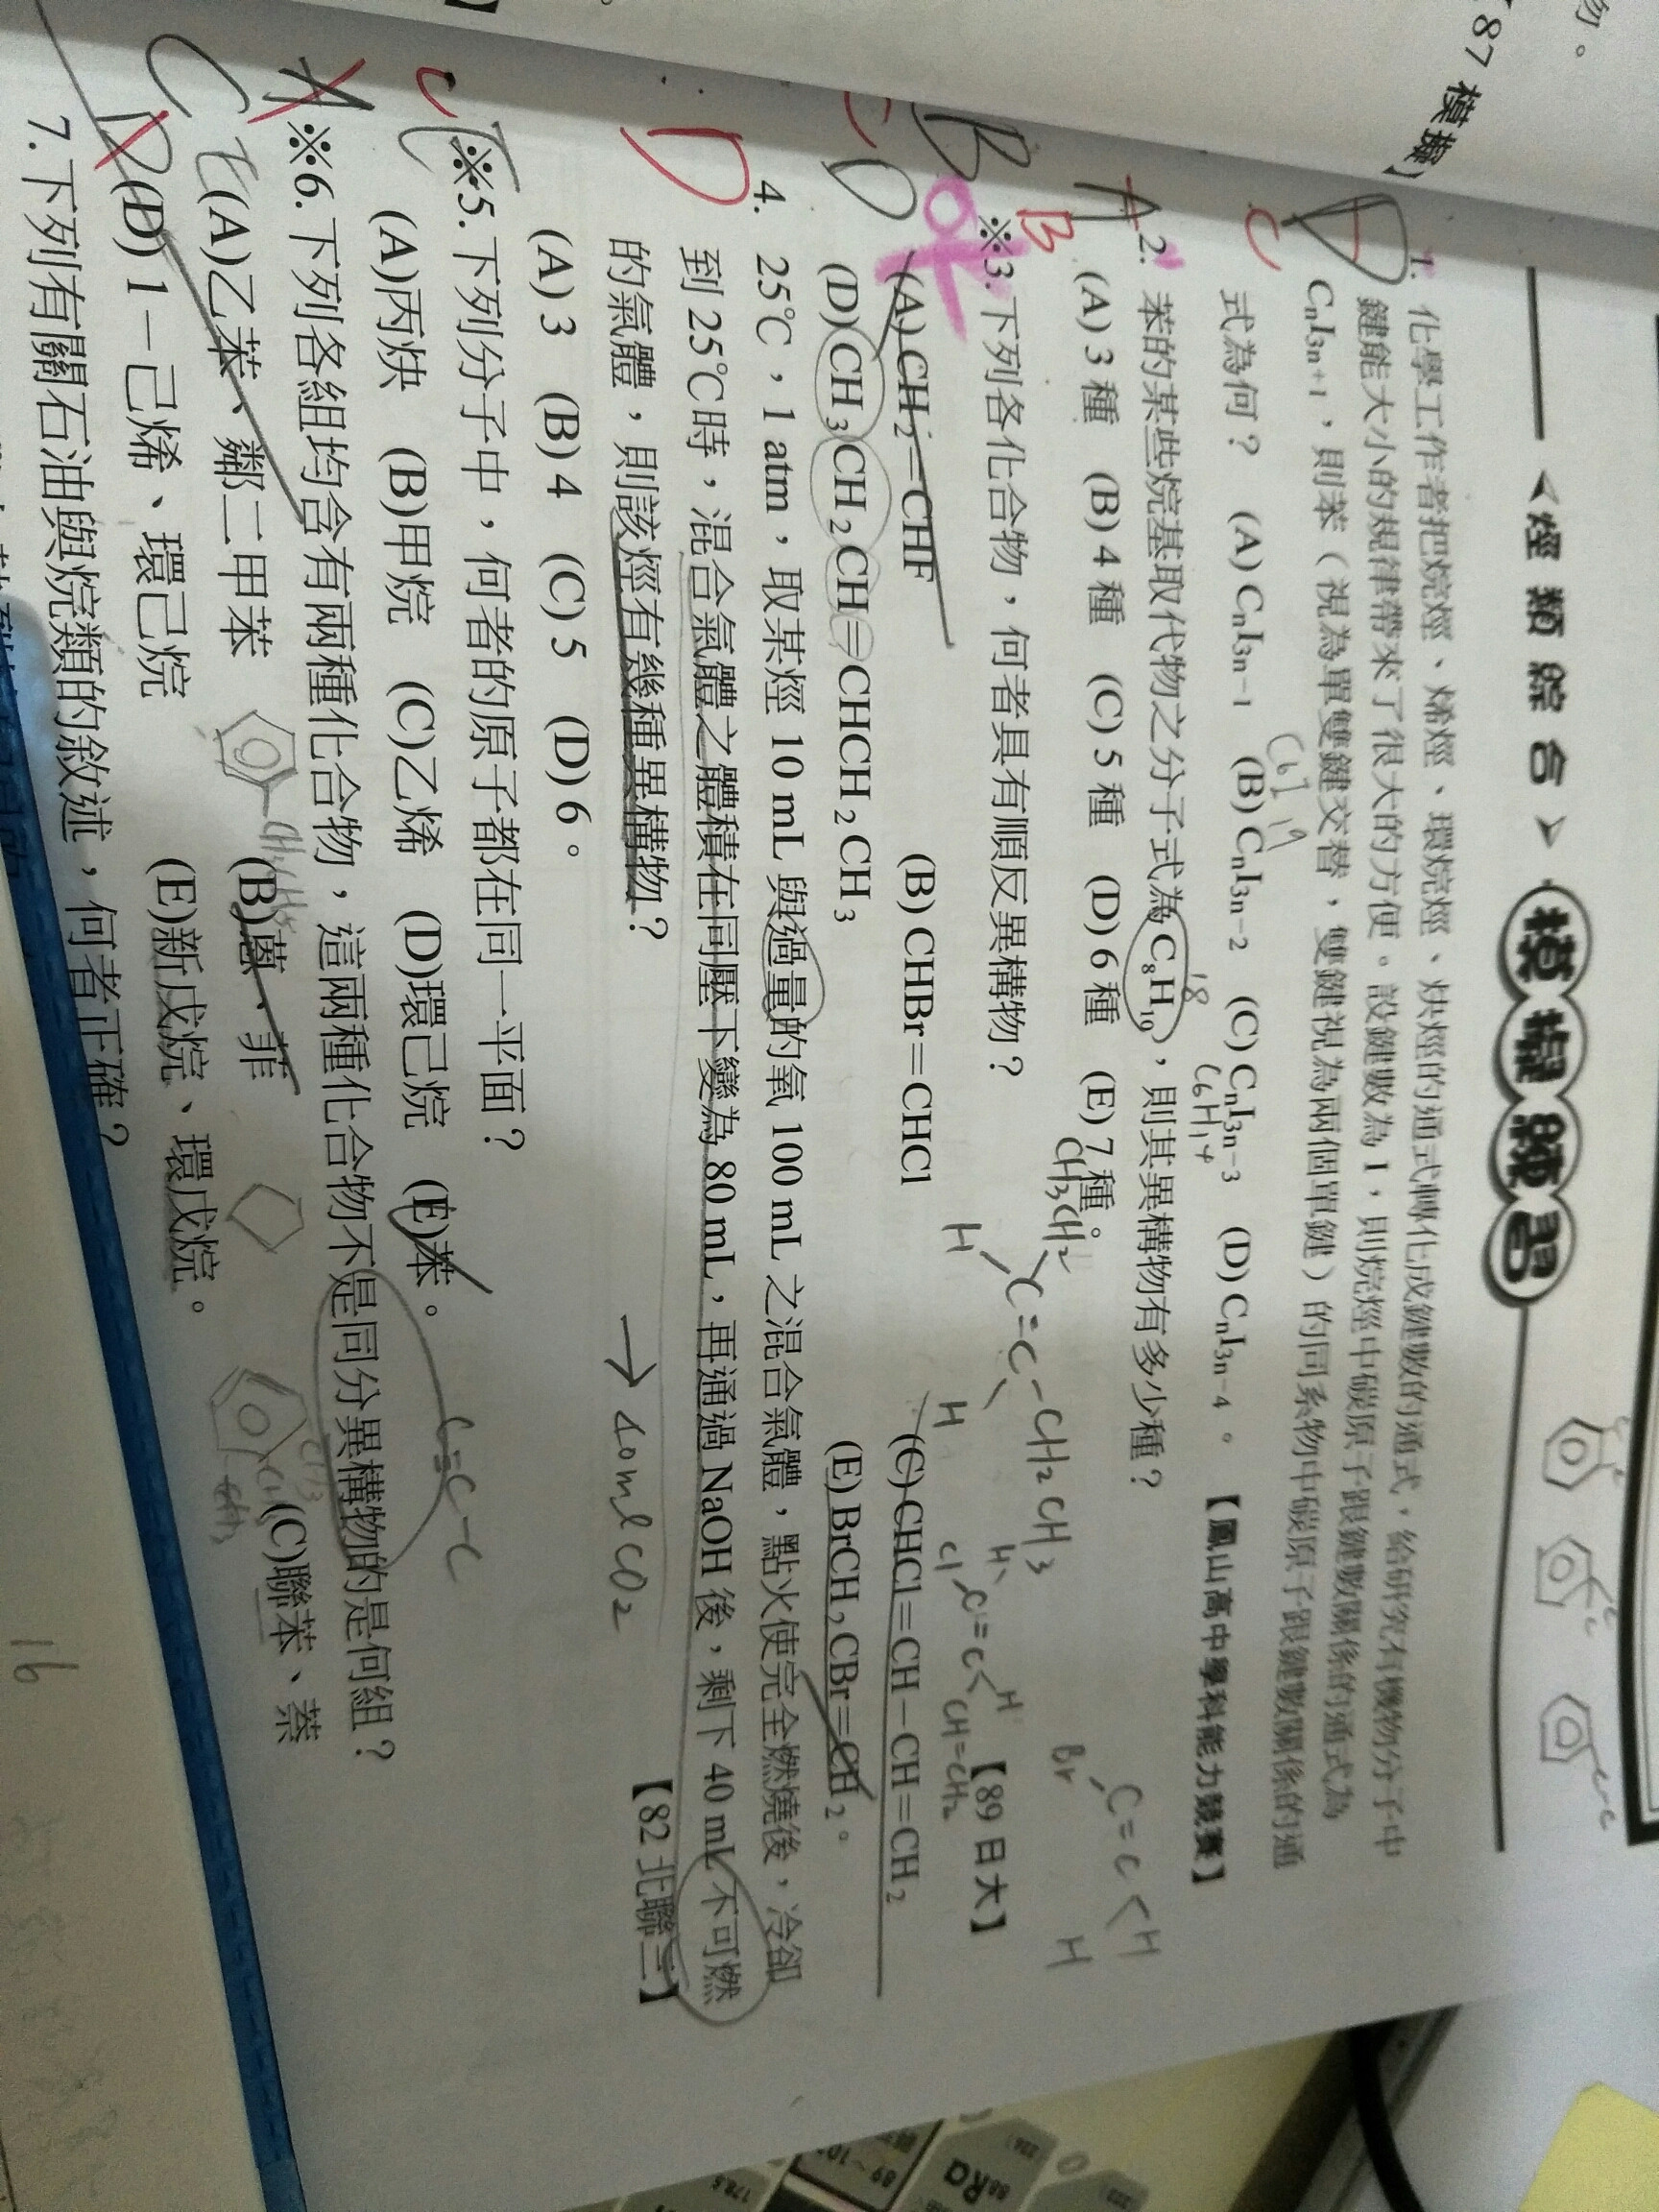 87 模擬】
<烴類綜合>模擬練習
1. 化學工作者把烷烴、烯烴、環烷烴、炔烴的通式轉化成鍵數的通式,給研究有機物分子中
鍵能大小的規律帶來了很大的方便。設鍵數為 I,則烷烴中碳原子跟鍵數關係的通式為
CnI3n+1,則苯(視為單雙鍵交替,雙鍵視為兩個單鍵)的同系物中碳原子跟鍵數關係的通
式為何? (A) CnI3n-1 (B) CnI3n-2 (C) CnI3n-3 (D) CnI3n-4。 【鳳山高中學科能力競賽】
C6H14
18
2. 苯的某些烷基取代物之分子式為 C8H10,則其異構物有多少種?
(A) 3 種 (B) 4 種 (C) 5 種 (D) 6 種 (E) 7 種。
CH3CH2
H
C=C
CH2CH3
H
Br
C=C
H
H
※3. 下列各化合物,何者具有順反異構物? 【89 日大】
H
Cl
C=C
H
CH=CH2
(A) CH2=CHF (B) CHBr=CHCl (C) CHCl=CH-CH=CH2
(D) CH3CH2CH=CHCH2CH3 (E) BrCH2CBr=CH2。
4. 25℃,1 atm,取某烴 10 mL 與過量的氧 100 mL 之混合氣體,點火使完全燃燒後,冷卻
到 25℃時,混合氣體之體積在同壓下變為 80 mL,再通過 NaOH 後,剩下 40 mL 不可燃
的氣體,則該烴有幾種異構物? 【82 北聯二】
→ 40ml CO2
(A) 3 (B) 4 (C) 5 (D) 6。
※5. 下列分子中,何者的原子都在同一平面?
(A)丙炔 (B)甲烷 (C)乙烯 (D)環己烷 (E)苯。
C≡C-C
※6. 下列各組均含有兩種化合物,這兩種化合物不是同分異構物的是何組?
(A)乙苯、鄰二甲苯 (B)蒽、菲 (C)聯苯、萘
(D) 1-己烯、環己烷 (E)新戊烷、環戊烷。
7. 下列有關石油與烷類的敘述,何者正確?
16
88Ra
89~10